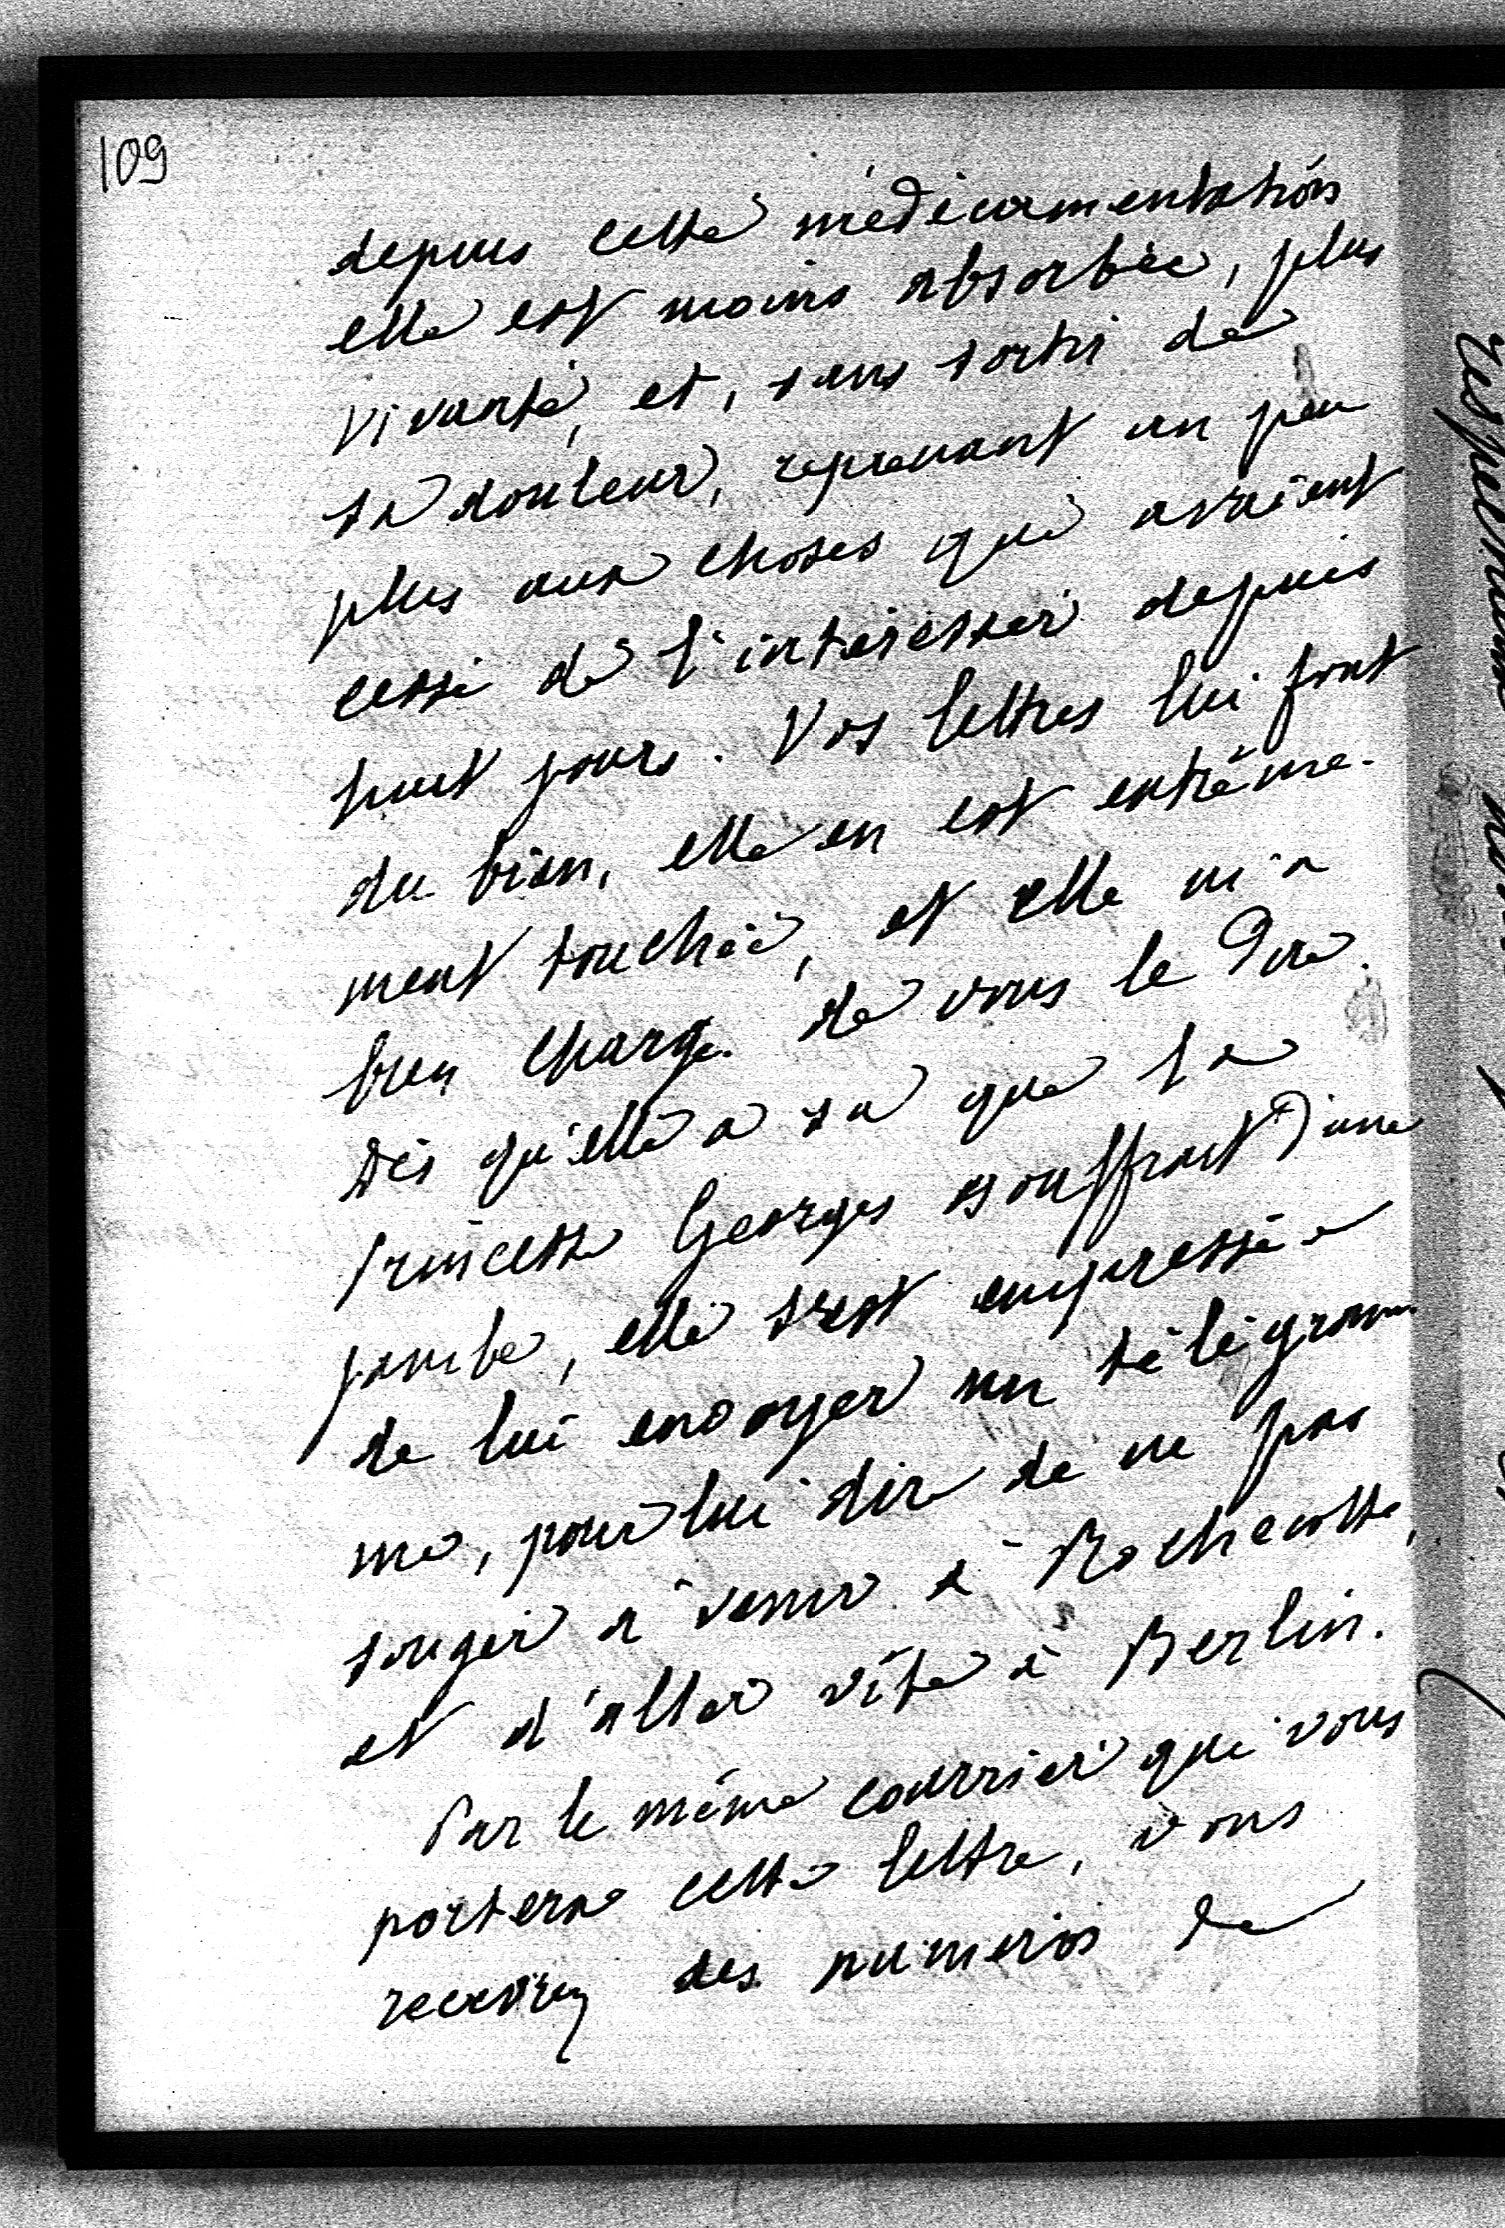 109
depuis cette médicamentation
elle est moins absorbée, plus
vivante, et, sans sortir de
sa douleur, reprenant un peu
plus aux choses qui avaient
cessé de l'intéresser depuis
huit jours. Vos lettres lui font
du bien, elle en est extrême-
ment touchée, et elle m'a
bien chargé de vous le dire.
Dès qu'elle a su que la
Princesse Georges souffrait d'une
jambe, elle s'est empressée
de lui envoyer un télégram-
me, pour lui dire de ne pas
songer à venir à Rochecotte,
et d'aller vite à Berlin.
Par le même courrier qui vous
portera cette lettre, vous
recevrez des numéros de